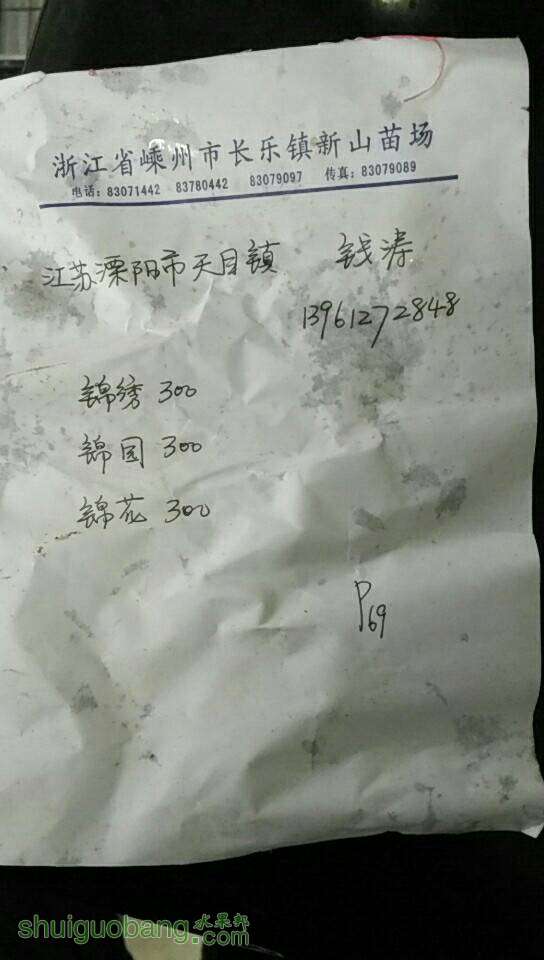 浙江省嵊州市长乐镇新山苗场
电话：83071442 83780442 83079097 传真：83079089
江苏溧阳市天目镇 钱涛
13961272848
锦绣 300
锦园 300
锦花 300
P69
水果邦
shuiguobang.com